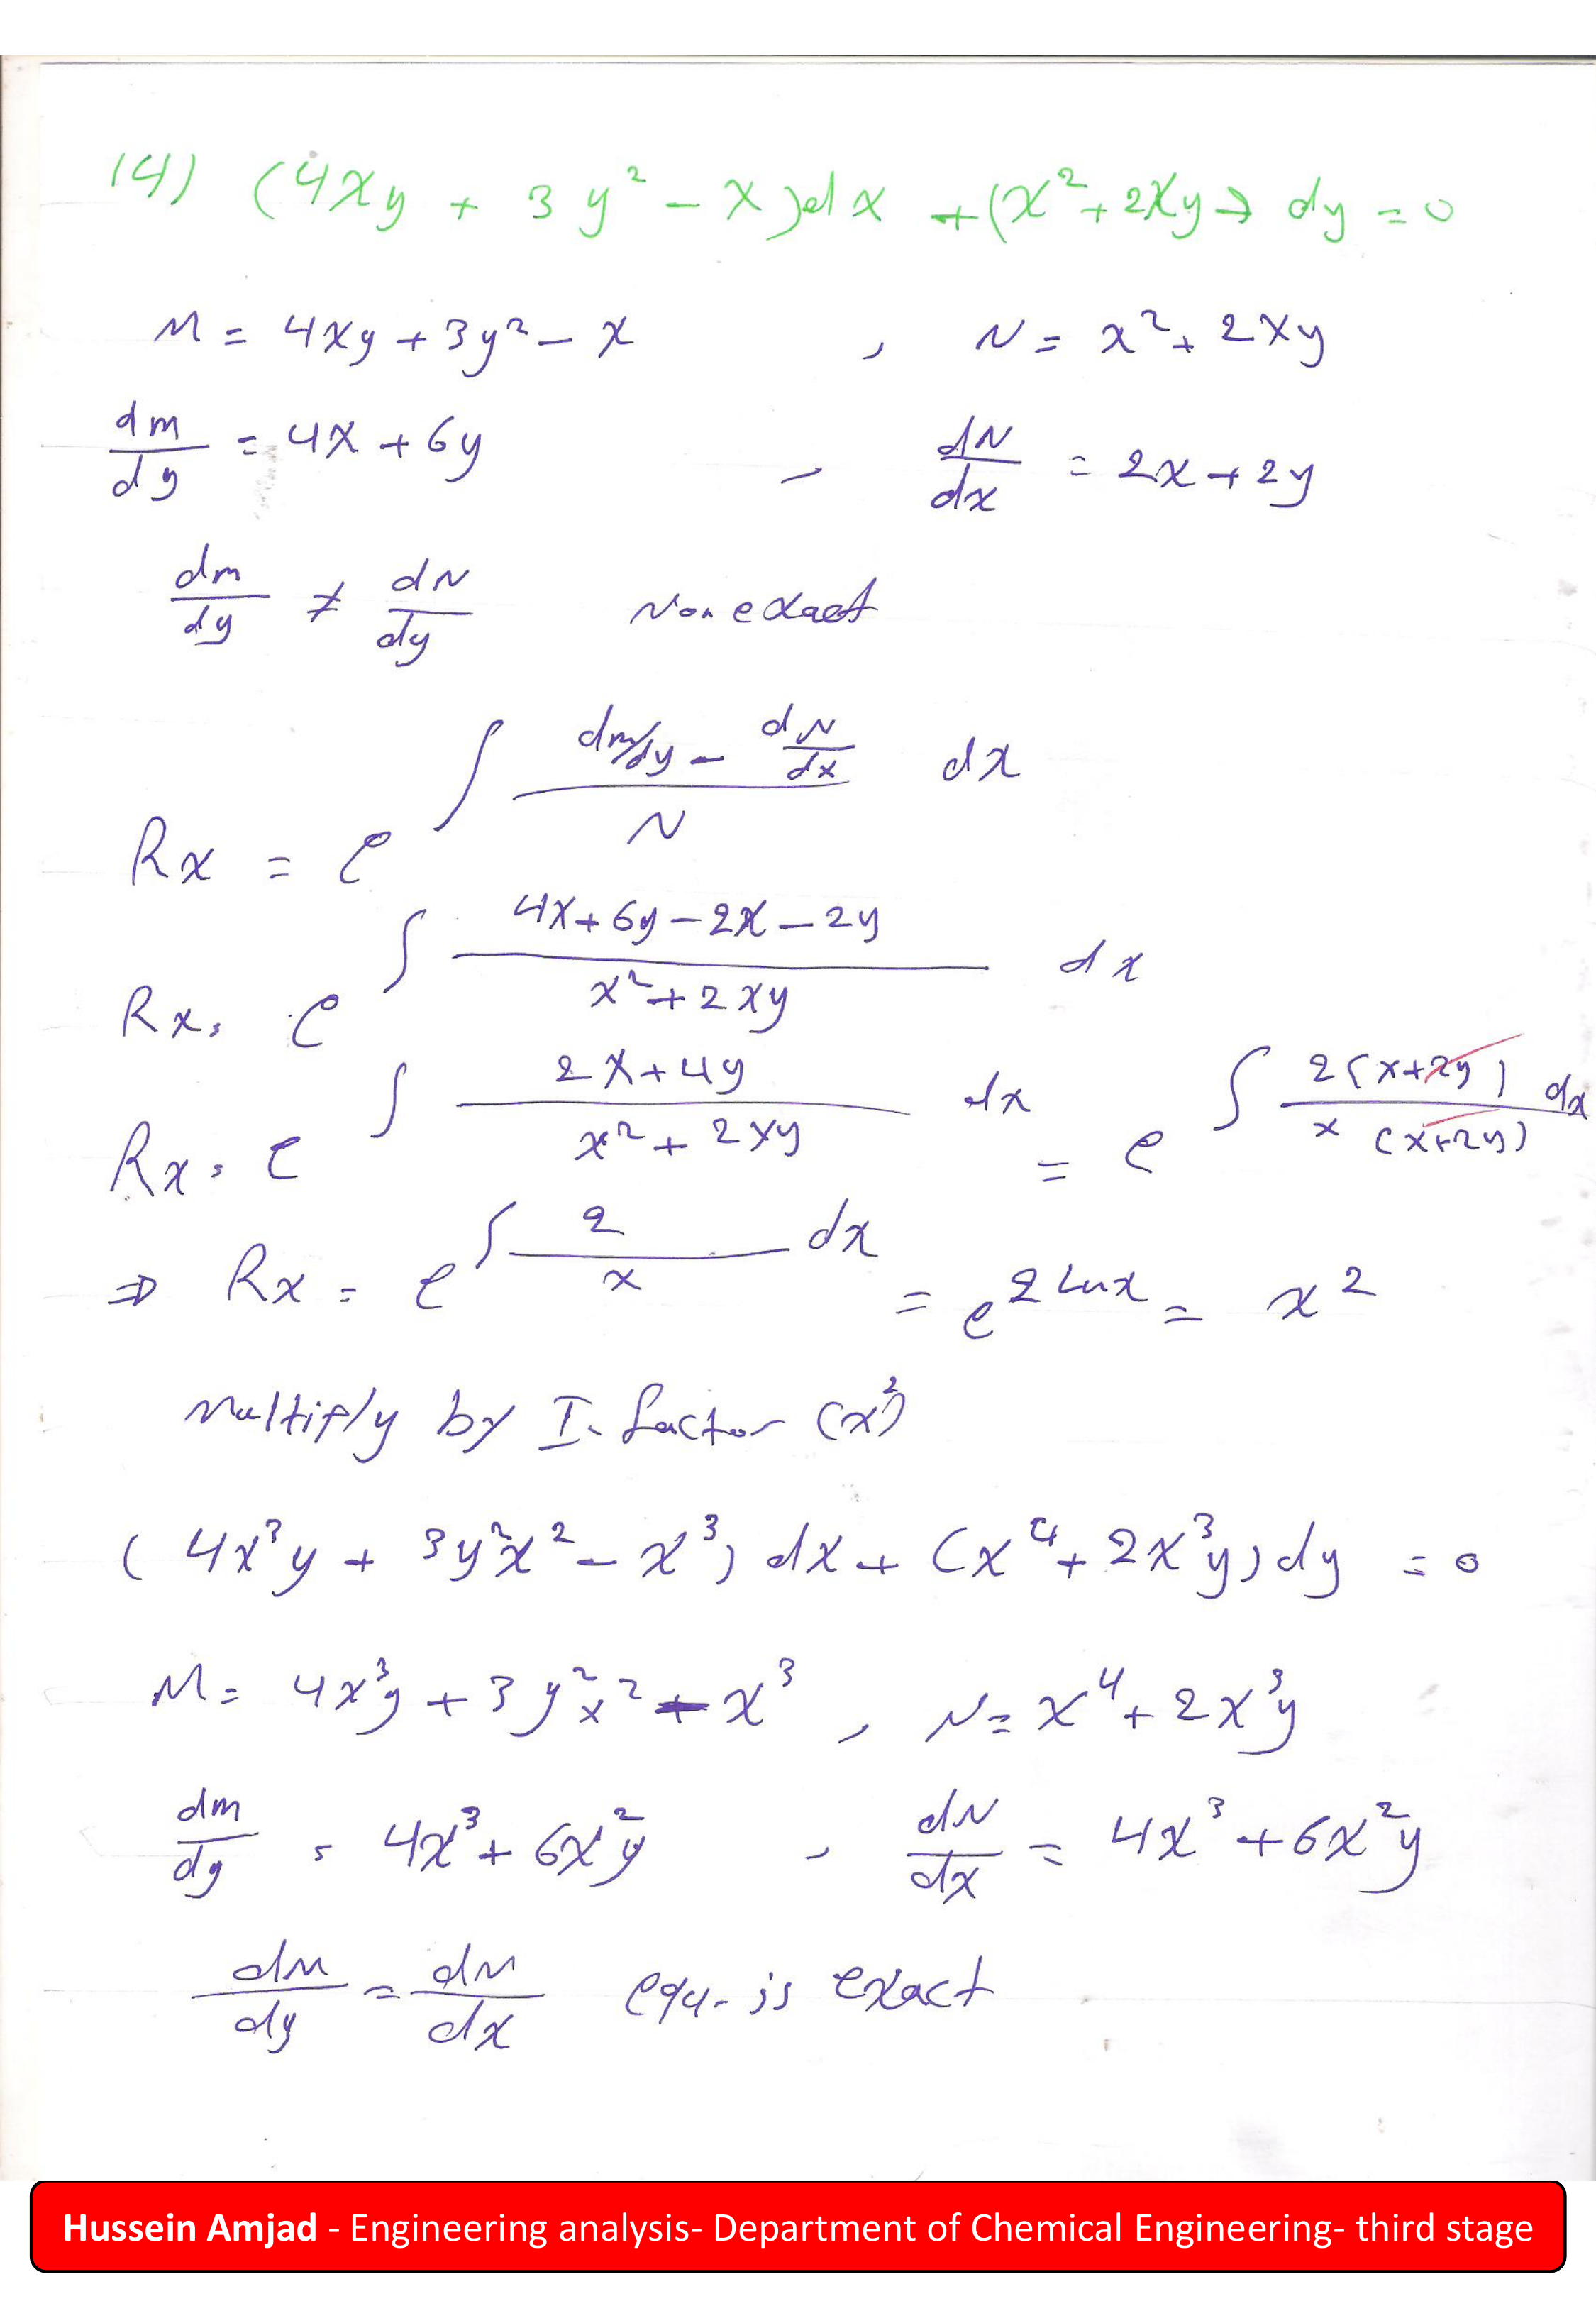 14) (4xy + 3y² - x)dx + (x² + 2xy) dy = 0
M = 4xy + 3y² - x , N = x² + 2xy
dm/dy = 4x + 6y , dN/dx = 2x + 2y
dm/dy ≠ dN/dy Non exact
Rx = e^∫ (dm/dy - dN/dx)/N dx
Rx = e^∫ (4x + 6y - 2x - 2y)/(x² + 2xy) dx
Rx = e^∫ (2x + 4y)/(x² + 2xy) dx = e^∫ 2(x+2y)/(x (x+2y)) dx
⇒ Rx = e^∫ 2/x dx = e^(2 Lnx) = x²
Multiply by I. factor (x²)
(4x³y + 3y²x² - x³) dx + (x⁴ + 2x³y) dy = 0
M = 4x³y + 3y²x² - x³ , N = x⁴ + 2x³y
dm/dy = 4x³ + 6x²y , dN/dx = 4x³ + 6x²y
dM/dy = dN/dx equ. is exact
Hussein Amjad - Engineering analysis- Department of Chemical Engineering- third stage